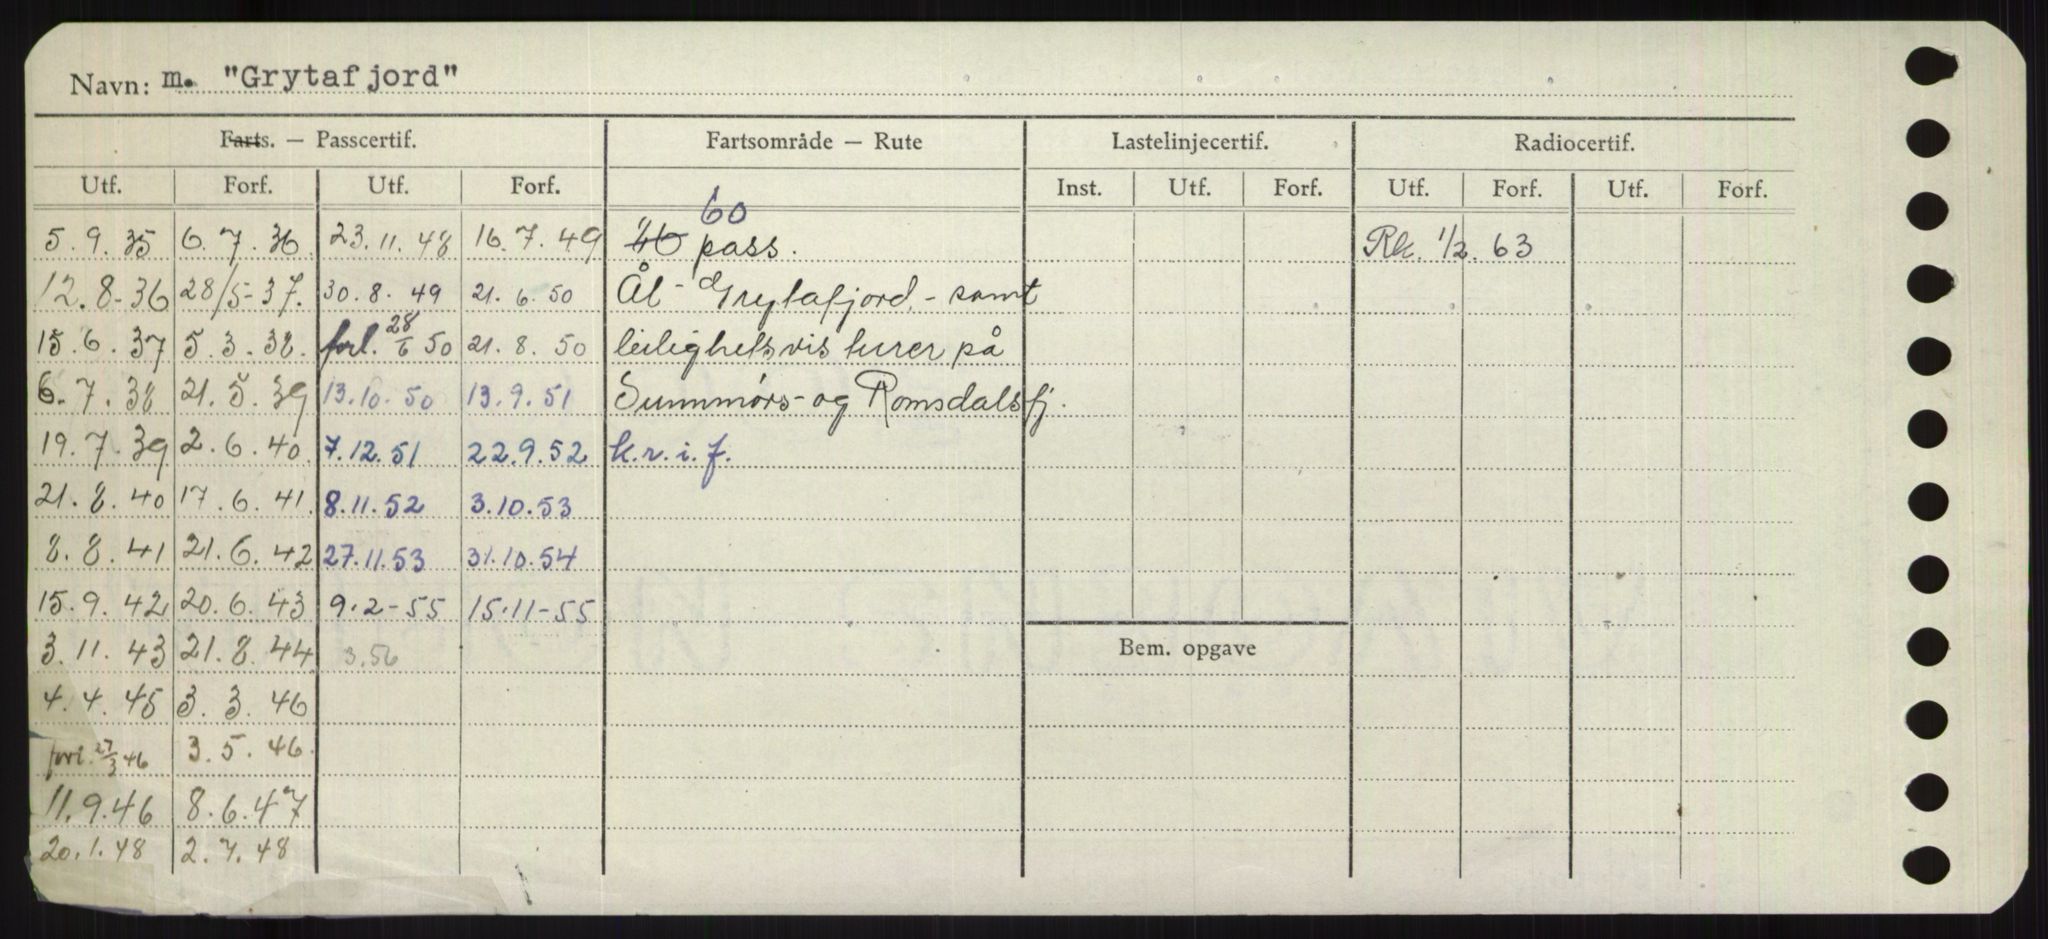 Navn: m. "Grytafjord"
Farts. — Passcertif. Fartsområde — Rute Lastelinjecertif. Radiocertif.
Utf. Forf. Utf. Forf. Inst. Utf. Forf. Utf. Forf. Utf. Forf.
60
5.9.35 6.7.36 23.11.48 16.7.49 pass. Rk. 1/2. 63
12.8-36 28/5-37. 30.8.49 21.6.50 Ål - Grytafjord, - samt
15.6.37 5.3.38. forl. 28/6 50 21.8.50 leilighetsvis turer på
6.7.38 21.5.39 13.10.50 13.9.51 Sunnmørs- og Romsdalsfj.
19.7.39 2.6.40 7.12.51 22.9.52 k.r.i.f.
21.8.40 17.6.41. 8.11.52 3.10.53
8.8.41 21.6.42 27.11.53 31.10.54
15.9.42 20.6.43 9.2-55 15.11-55
3.11.43 21.8.44 3.56 Bem. opgave
4.4.45 3.3.46
forl. 27/3 46 3.5.46.
11.9.46 8.6.47
20.1.48 2.7.48